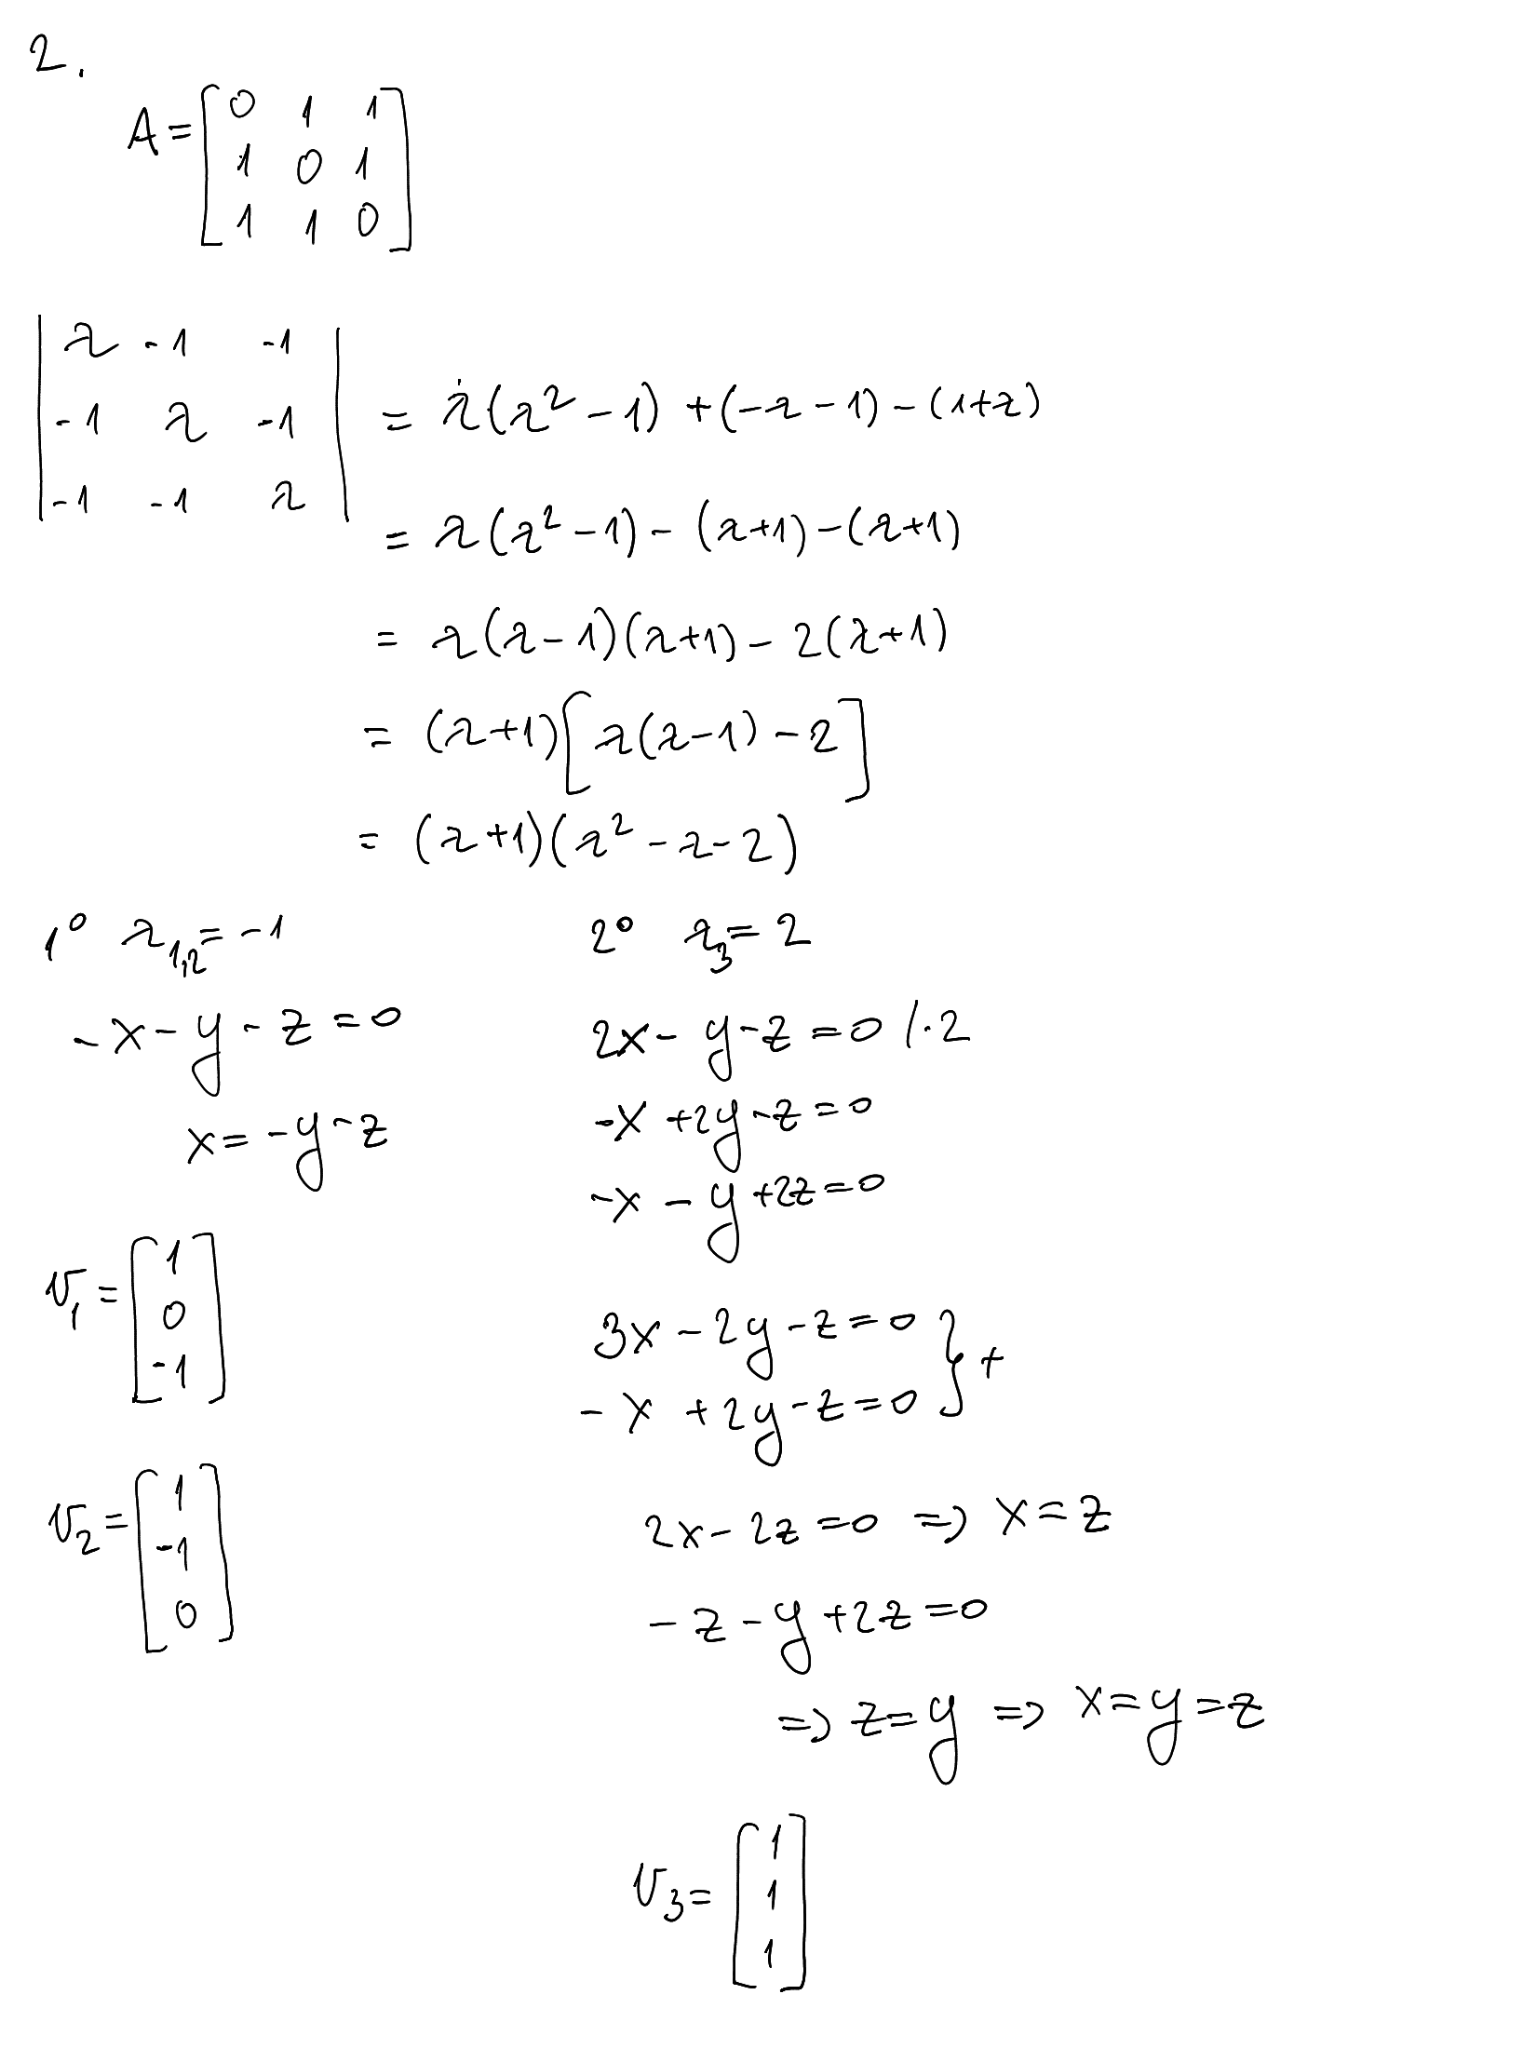 2.
A = [0 1 1
1 0 1
1 1 0]
|λ -1 -1
-1 λ -1
-1 -1 λ|
= λ(λ² - 1) + (-λ - 1) - (1+λ)
= λ(λ² - 1) - (λ+1) - (λ+1)
= λ(λ - 1)(λ+1) - 2(λ+1)
= (λ+1)[λ(λ-1) - 2]
= (λ+1)(λ² - λ - 2)
1° λ₁,₂ = -1
-x - y - z = 0
x = -y - z
v₁ = [1
0
-1]
v₂ = [1
-1
0]
2° λ₃ = 2
2x - y - z = 0 /·2
-x + 2y - z = 0
-x - y + 2z = 0
3x - 2y - z = 0 } +
-x + 2y - z = 0
2x - 2z = 0 => x = z
-z - y + 2z = 0
=> z = y => x = y = z
v₃ = [1
1
1]